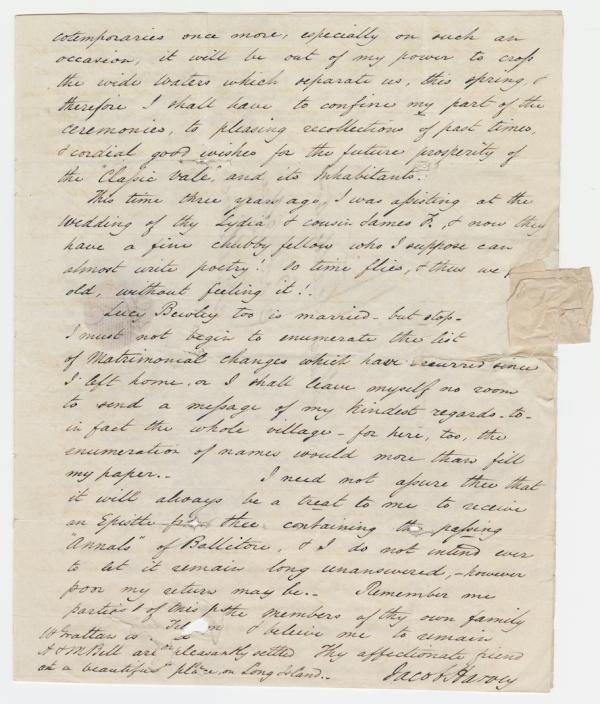 cotemporaries once more, especially on such an
occasion, it will be out of my power to cross
the wide waters which separate us, this spring, &
therefore I shall have to confine my part of the
ceremonies, to pleasing recollections of past times,
& cordial good wishes for the future prosperity of
the "Classic Vale", and its Inhabitants.-
This time three years ago, I was assisting at the
Wedding of thy Lydia & cousin James F. & now they
have a fine chubby fellow who I suppose can
almost write poetry! So time flies, & thus we
old, without feeling it!-
Lucy Bewley too is married - but stop -
I must not begin to enumerate the list
of Matrimonial changes which have occurred since
I left home - or I shall leave myself no room
to send a message of my kindest regards - to -
in fact the whole village - for here, too, the
enumeration of names would more than fill
my paper.- I need not assure thee that
it will always be a treat to me to receive
an Epistle from thee containing the passing
"Annals" of Ballitore, & I do not intend ever
to let it remain long unanswered, - however
poor my return may be.- Remember me
to the members of thy own family
& believe me to remain
Thy affectionate friend
Jacob Harvey
W Grattan is
A & M Bell are pleasantly settled
at a beautiful place, on Long Island.-